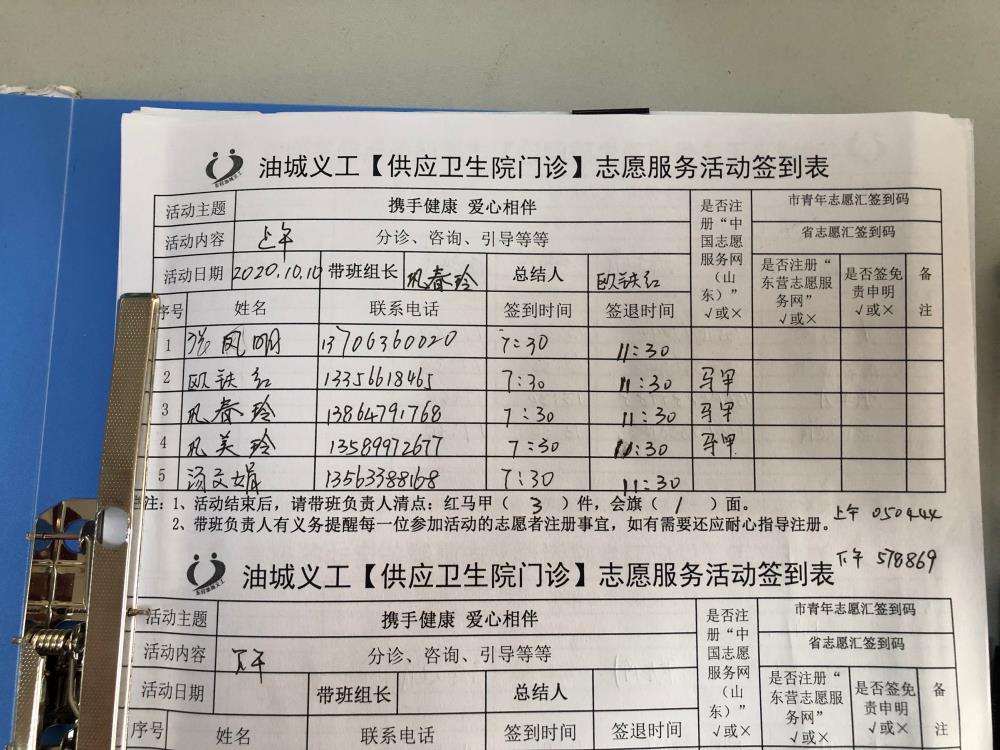 油城义工【供应卫生院门诊】志愿服务活动签到表
活动主题 携手健康 爱心相伴 是否注册“中国志愿服务网（山东）”√或× 市青年志愿汇签到码
活动内容 上午 分诊、咨询、引导等等 省志愿汇签到码
活动日期 2020.10.10 带班组长 巩春玲 总结人 欧铁红 是否注册“东营志愿服务网”√或× 是否签免责申明√或× 备注
序号 姓名 联系电话 签到时间 签退时间
1 张凤明 13706360020 7:30 11:30
2 欧铁红 13356618465 7:30 11:30 马甲
3 巩春玲 13864791768 7:30 11:30 马甲
4 巩美玲 13589972677 7:30 11:30 马甲
5 汤文娟 13563388168 7:30 11:30
注：1、活动结束后，请带班负责人清点：红马甲（ 3 ）件，会旗（ 1 ）面。
2、带班负责人有义务提醒每一位参加活动的志愿者注册事宜，如有需要还应耐心指导注册。
上午 050444
下午 578869
油城义工【供应卫生院门诊】志愿服务活动签到表
活动主题 携手健康 爱心相伴 是否注册“中国志愿服务网（山东）”√或× 市青年志愿汇签到码
活动内容 下午 分诊、咨询、引导等等 省志愿汇签到码
活动日期 带班组长 总结人 是否注册“东营志愿服务网”√或× 是否签免责申明√或× 备注
序号 姓名 联系电话 签到时间 签退时间